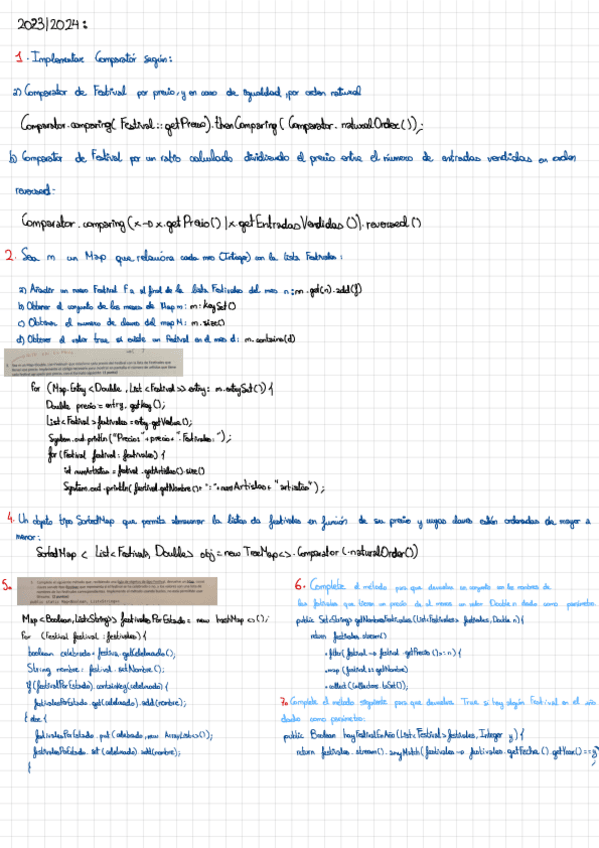 2023/2024:
1. Implementar Comparator según:
a) Comparator de Festival por precio, y en caso de igualdad, por orden natural
Comparator.comparing(Festival::getPrecio).thenComparing(Comparator.naturalOrder());
b) Comparator de Festival por un ratio calculado dividiendo el precio entre el número de entradas vendidas en orden
reversed:
Comparator.comparing(x->x.getPrecio()/x.getEntradasVendidas()).reversed()
2. Sea m un Map que relaciona cada mes (Integer) con la lista Festivales:
a) Añadir un nuevo Festival F al final de la lista Festivales del mes n: m.get(n).add(f)
b) Obtener el conjunto de los meses de Map m: m.keySet()
c) Obtener el numero de claves del map M: m.size()
d) Obtener el valor true si existe un Festival en el mes d: m.contains(d)
For (Map.Entry<Double, List<Festival>> entry: m.entrySet()){
Double precio = entry.getKey();
List<Festival> festivales = entry.getValue();
System.out.println("Precio:"+precio+".Festivales:");
for (Festival festival: festivales){
int numArtistas = festival.getArtistas().size()
System.out.println(festival.getNombre()+":"+numArtistas+"artistas");
4. Un objeto tipo SortedMap que permita almacenar la listas de festivales en función de su precio y cuyas claves estén ordenadas de mayor a
menor:
SortedMap < List<Festival>, Double> obj = new TreeMap<>.Comparator(.naturalOrder())
5.
Map<Boolean, List<String>> festivalesPorEstado = new hashMap<>();
For (Festival festival: festivales){
boolean celebrado = festival.getCelebrado();
String nombre: festival.getNombre();
if(festivalPorEstado).containsKey(celebrado){
festivalesPorEstado.get(celebrado).add(nombre);
} else {
festivalesPorEstado.put(celebrado, new ArrayList<>());
festivalesPorEstado.get(celebrado).add(nombre);
}
6. Complete el método para que devuelva un conjunto con los nombres de
los festivales que tienen un precio de al menos un valor Double n dado como parámetro.
public Set<String> getNombresFestivales(List<Festival> festivales, Double n){
return festivales.stream()
.filter(festival -> festival.getPrecio()>=n){
.map(festival::getNombre)
.collect(Collectors.toSet());
7. Complete el método siguiente para que devuelva True si hay algún Festival en el año
dado como parámetro:
public Boolean hayFestivalEnAño(List<Festival> festivales, Integer y){
return festivales.stream().anyMatch(festivales -> festivales.getFecha().getYear()==y)